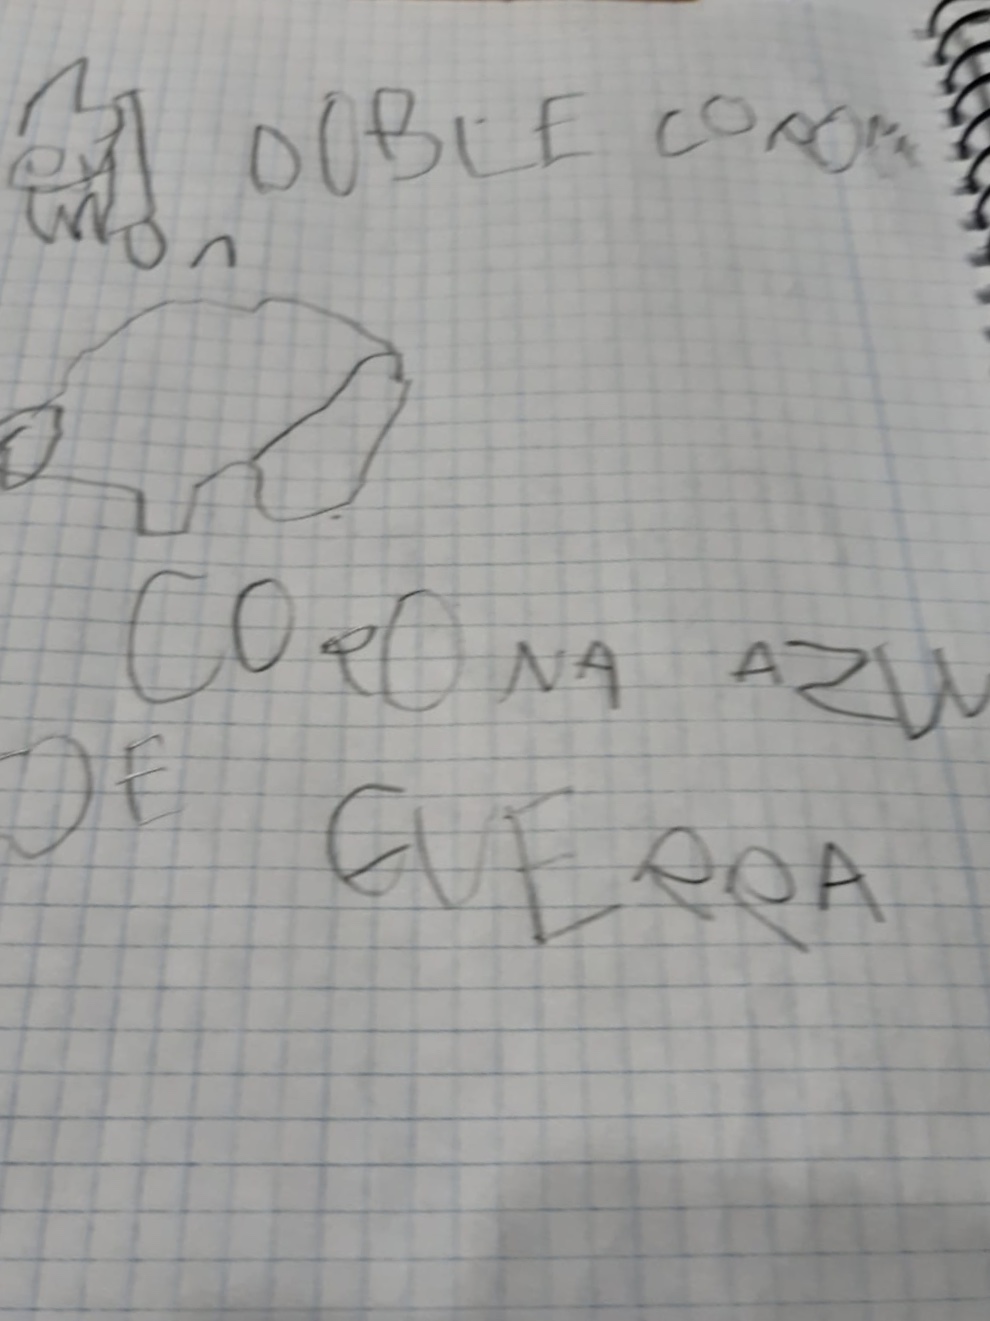 DOBLE CORON
CORONA AZUL
DE GUERRA